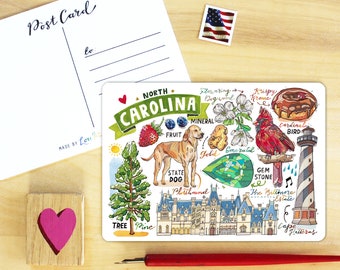 Post Card
to
MADE BY
NORTH
CAROLINA
FRUIT
MINERAL
Gold
Flowering
Dogwood
Krispy
Kreme
Cardinal
BIRD
STATE
DOG
Plott hound
Emerald
GEM
STONE
TREE
Pine
The Biltmore
Estate
Cape
Hatteras